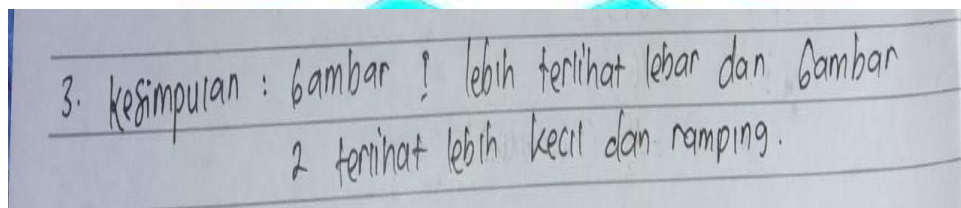 3. Kesimpulan : Gambar 1 lebih terlihat lebar dan Gambar
2 terlihat lebih kecil dan ramping.